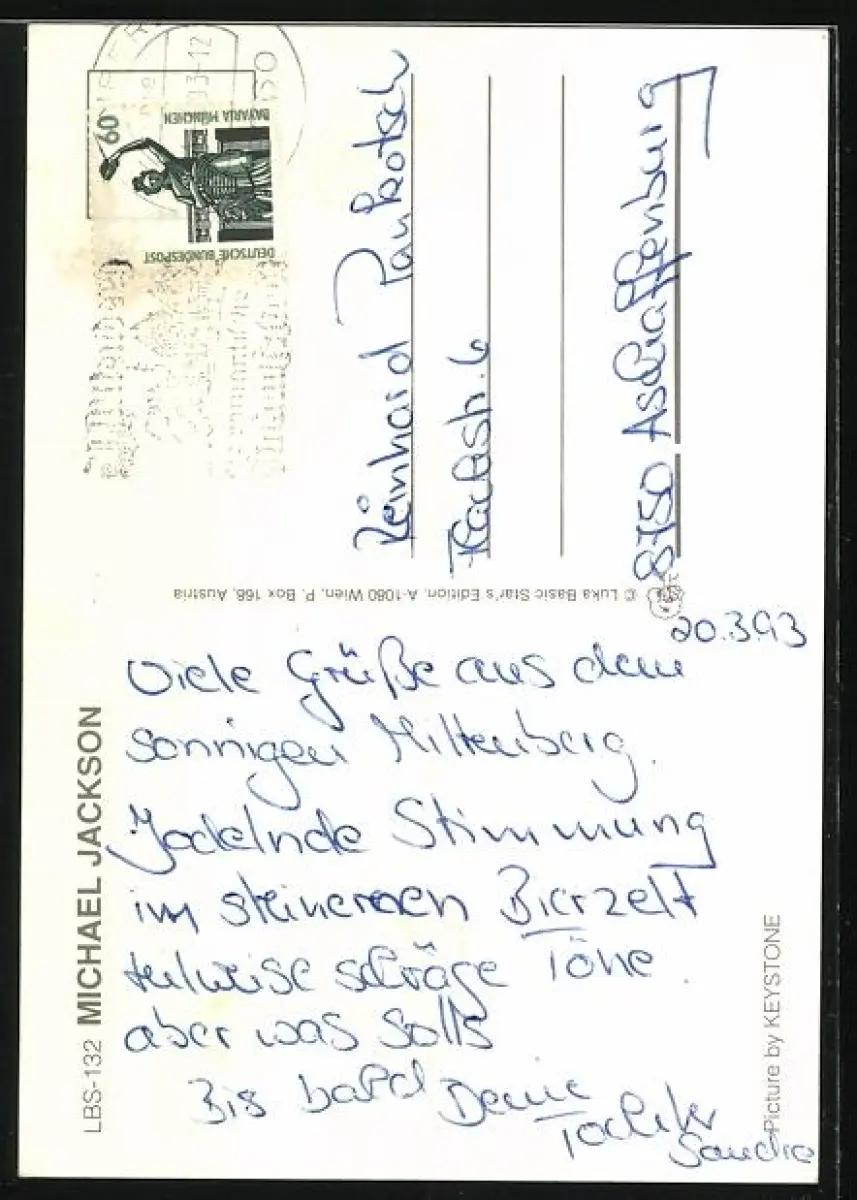 60
BAVARIA MÜNCHEN
DEUTSCHE BUNDESPOST
Reinhard
8750 Aschaffenburg
© Luka Basic Star's Edition, A-1080 Wien, P. Box 168, Austria
20.3.93
Viele Grüße aus dem
sonnigen Miltenberg.
Jodelnde Stimmung
im steinernen Bierzelt
teilweise schräge Töne.
aber was solls
Bis bald Deine
Tochter
Sandra
LBS-132 MICHAEL JACKSON
Picture by KEYSTONE